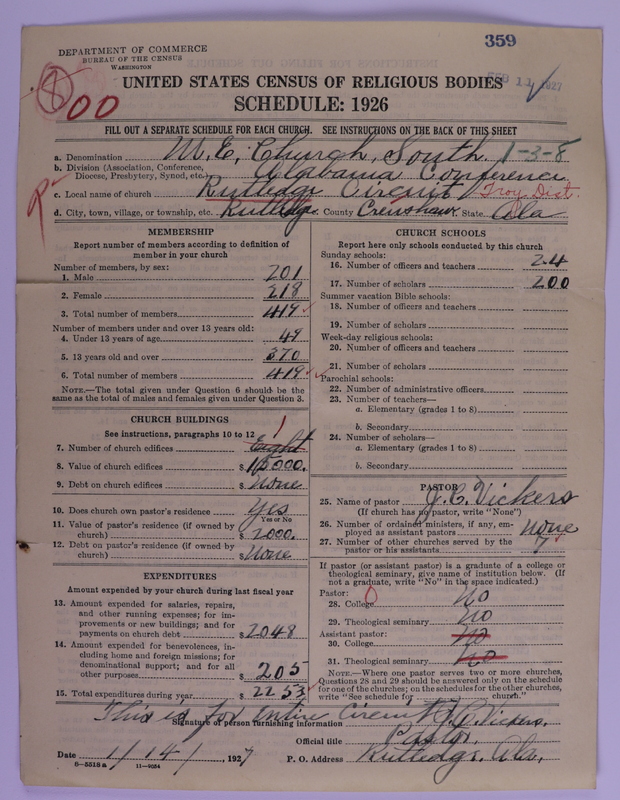 359
DEPARTMENT OF COMMERCE
BUREAU OF THE CENSUS
WASHINGTON
FEB 11 1927
800
UNITED STATES CENSUS OF RELIGIOUS BODIES
SCHEDULE: 1926
FILL OUT A SEPARATE SCHEDULE FOR EACH CHURCH. SEE INSTRUCTIONS ON THE BACK OF THIS SHEET
a. Denomination M. E. Church, South. 1-3-8
b. Division (Association, Conference, Diocese, Presbytery, Synod, etc.) Alabama Conference
c. Local name of church Rutledge Circuit Troy Dist.
d. City, town, village, or township, etc. Rutledge. County Crenshaw. State Ala
MEMBERSHIP
Report number of members according to definition of
member in your church
Number of members, by sex:
1. Male 201
2. Female 218
3. Total number of members 419
Number of members under and over 13 years old:
4. Under 13 years of age 49
5. 13 years old and over 370
6. Total number of members 419
NOTE.—The total given under Question 6 should be the
same as the total of males and females given under Question 3.
CHURCH BUILDINGS
See instructions, paragraphs 10 to 12
1
7. Number of church edifices Eight
8. Value of church edifices $ 15000.
9. Debt on church edifices $ None
10. Does church own pastor's residence Yes
Yes or No
11. Value of pastor's residence (if owned by
church) $ 2000.
12. Debt on pastor's residence (if owned by
church) $ None
EXPENDITURES
Amount expended by your church during last fiscal year
13. Amount expended for salaries, repairs,
and other running expenses; for im-
provements or new buildings; and for
payments on church debt $ 2048
14. Amount expended for benevolences, in-
cluding home and foreign missions; for
denominational support; and for all
other purposes $ 205
15. Total expenditures during year $ 2253
CHURCH SCHOOLS
Report here only schools conducted by this church
Sunday schools:
16. Number of officers and teachers 24
17. Number of scholars 200
Summer vacation Bible schools:
18. Number of officers and teachers
19. Number of scholars
Week-day religious schools:
20. Number of officers and teachers
21. Number of scholars
Parochial schools:
22. Number of administrative officers
23. Number of teachers—
a. Elementary (grades 1 to 8)
b. Secondary
24. Number of scholars—
a. Elementary (grades 1 to 8)
b. Secondary
PASTOR
25. Name of pastor J. C. Vickers
(If church has no pastor, write "None")
26. Number of ordained ministers, if any, em-
ployed as assistant pastors none
27. Number of other churches served by the
pastor or his assistants 7
If pastor (or assistant pastor) is a graduate of a college or
theological seminary, give name of institution below. (If
not a graduate, write "No" in the space indicated.)
Pastor:
28. College No
29. Theological seminary No
Assistant pastor:
30. College No
31. Theological seminary No
NOTE.—Where one pastor serves two or more churches,
Questions 28 and 29 should be answered only on the schedule
for one of the churches; on the schedules for the other churches,
write "See schedule for church."
This is for entire Circuit
Signature of person furnishing information J. C. Vickers.
Official title Pastor.
Date 1/14/, 1927 P. O. Address Rutledge. Ala.
8—5518a 11—9024